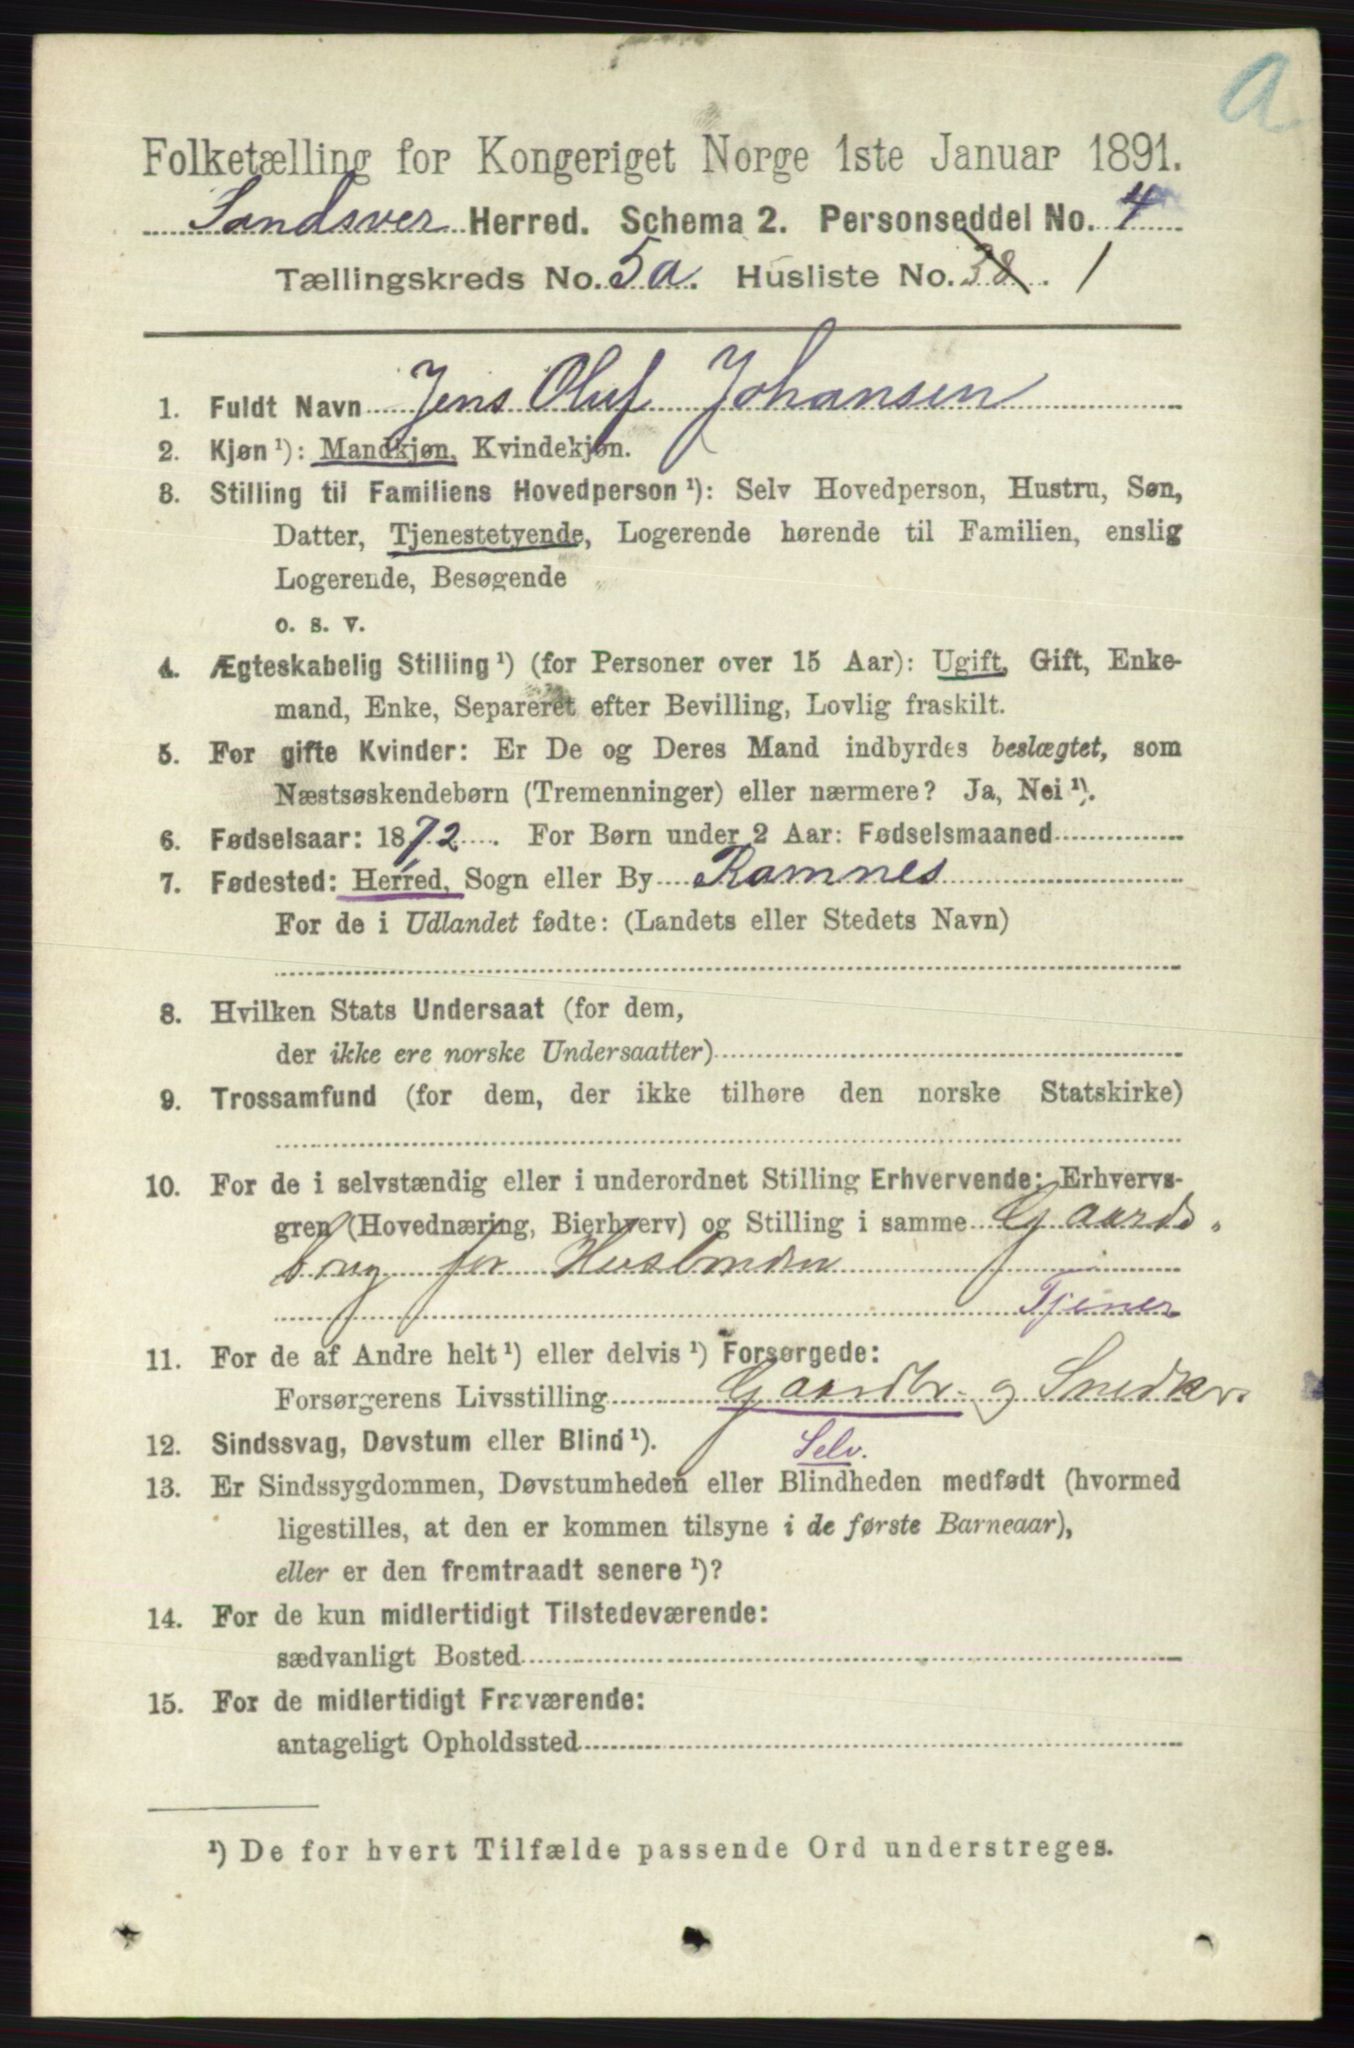 a
Folketælling for Kongeriget Norge 1ste Januar 1891.
Sandsver Herred. Schema 2. Personseddel No. 4
Tællingskreds No. 5a. Husliste No. 38. 1
1. Fuldt Navn Jens Oluf Johansen
2. Kjøn ¹): Mandkjøn, Kvindekjøn.
3. Stilling til Familiens Hovedperson ¹): Selv Hovedperson, Hustru, Søn,
Datter, Tjenestetyende, Logerende hørende til Familien, enslig
Logerende, Besøgende
o. s. v.
4. Ægteskabelig Stilling ¹) (for Personer over 15 Aar): Ugift, Gift, Enke-
mand, Enke, Separeret efter Bevilling, Lovlig fraskilt.
5. For gifte Kvinder: Er De og Deres Mand indbyrdes beslægtet, som
Næstsøskendebørn (Tremenninger) eller nærmere? Ja, Nei ¹).
6. Fødselsaar: 1872. For Børn under 2 Aar: Fødselsmaaned
7. Fødested: Herred, Sogn eller By Ramnes
For de i Udlandet fødte: (Landets eller Stedets Navn)
8. Hvilken Stats Undersaat (for dem,
der ikke ere norske Undersaatter)
9. Trossamfund (for dem, der ikke tilhøre den norske Statskirke)
10. For de i selvstændig eller i underordnet Stilling Erhvervende: Erhvervs-
gren (Hovednæring, Bierhverv) og Stilling i samme Gaards-
brug for Husbonden
Tjener
11. For de af Andre helt ¹) eller delvis ¹) Forsørgede:
Forsørgerens Livsstilling Gaardbr. og Snedker.
12. Sindssvag, Døvstum eller Blind ¹). Selv.
13. Er Sindssygdommen, Døvstumheden eller Blindheden medfødt (hvormed
ligestilles, at den er kommen tilsyne i de første Barneaar),
eller er den fremtraadt senere ¹)?
14. For de kun midlertidigt Tilstedeværende:
sædvanligt Bosted
15. For de midlertidigt Fraværende:
antageligt Opholdssted
¹) De for hvert Tilfælde passende Ord understreges.